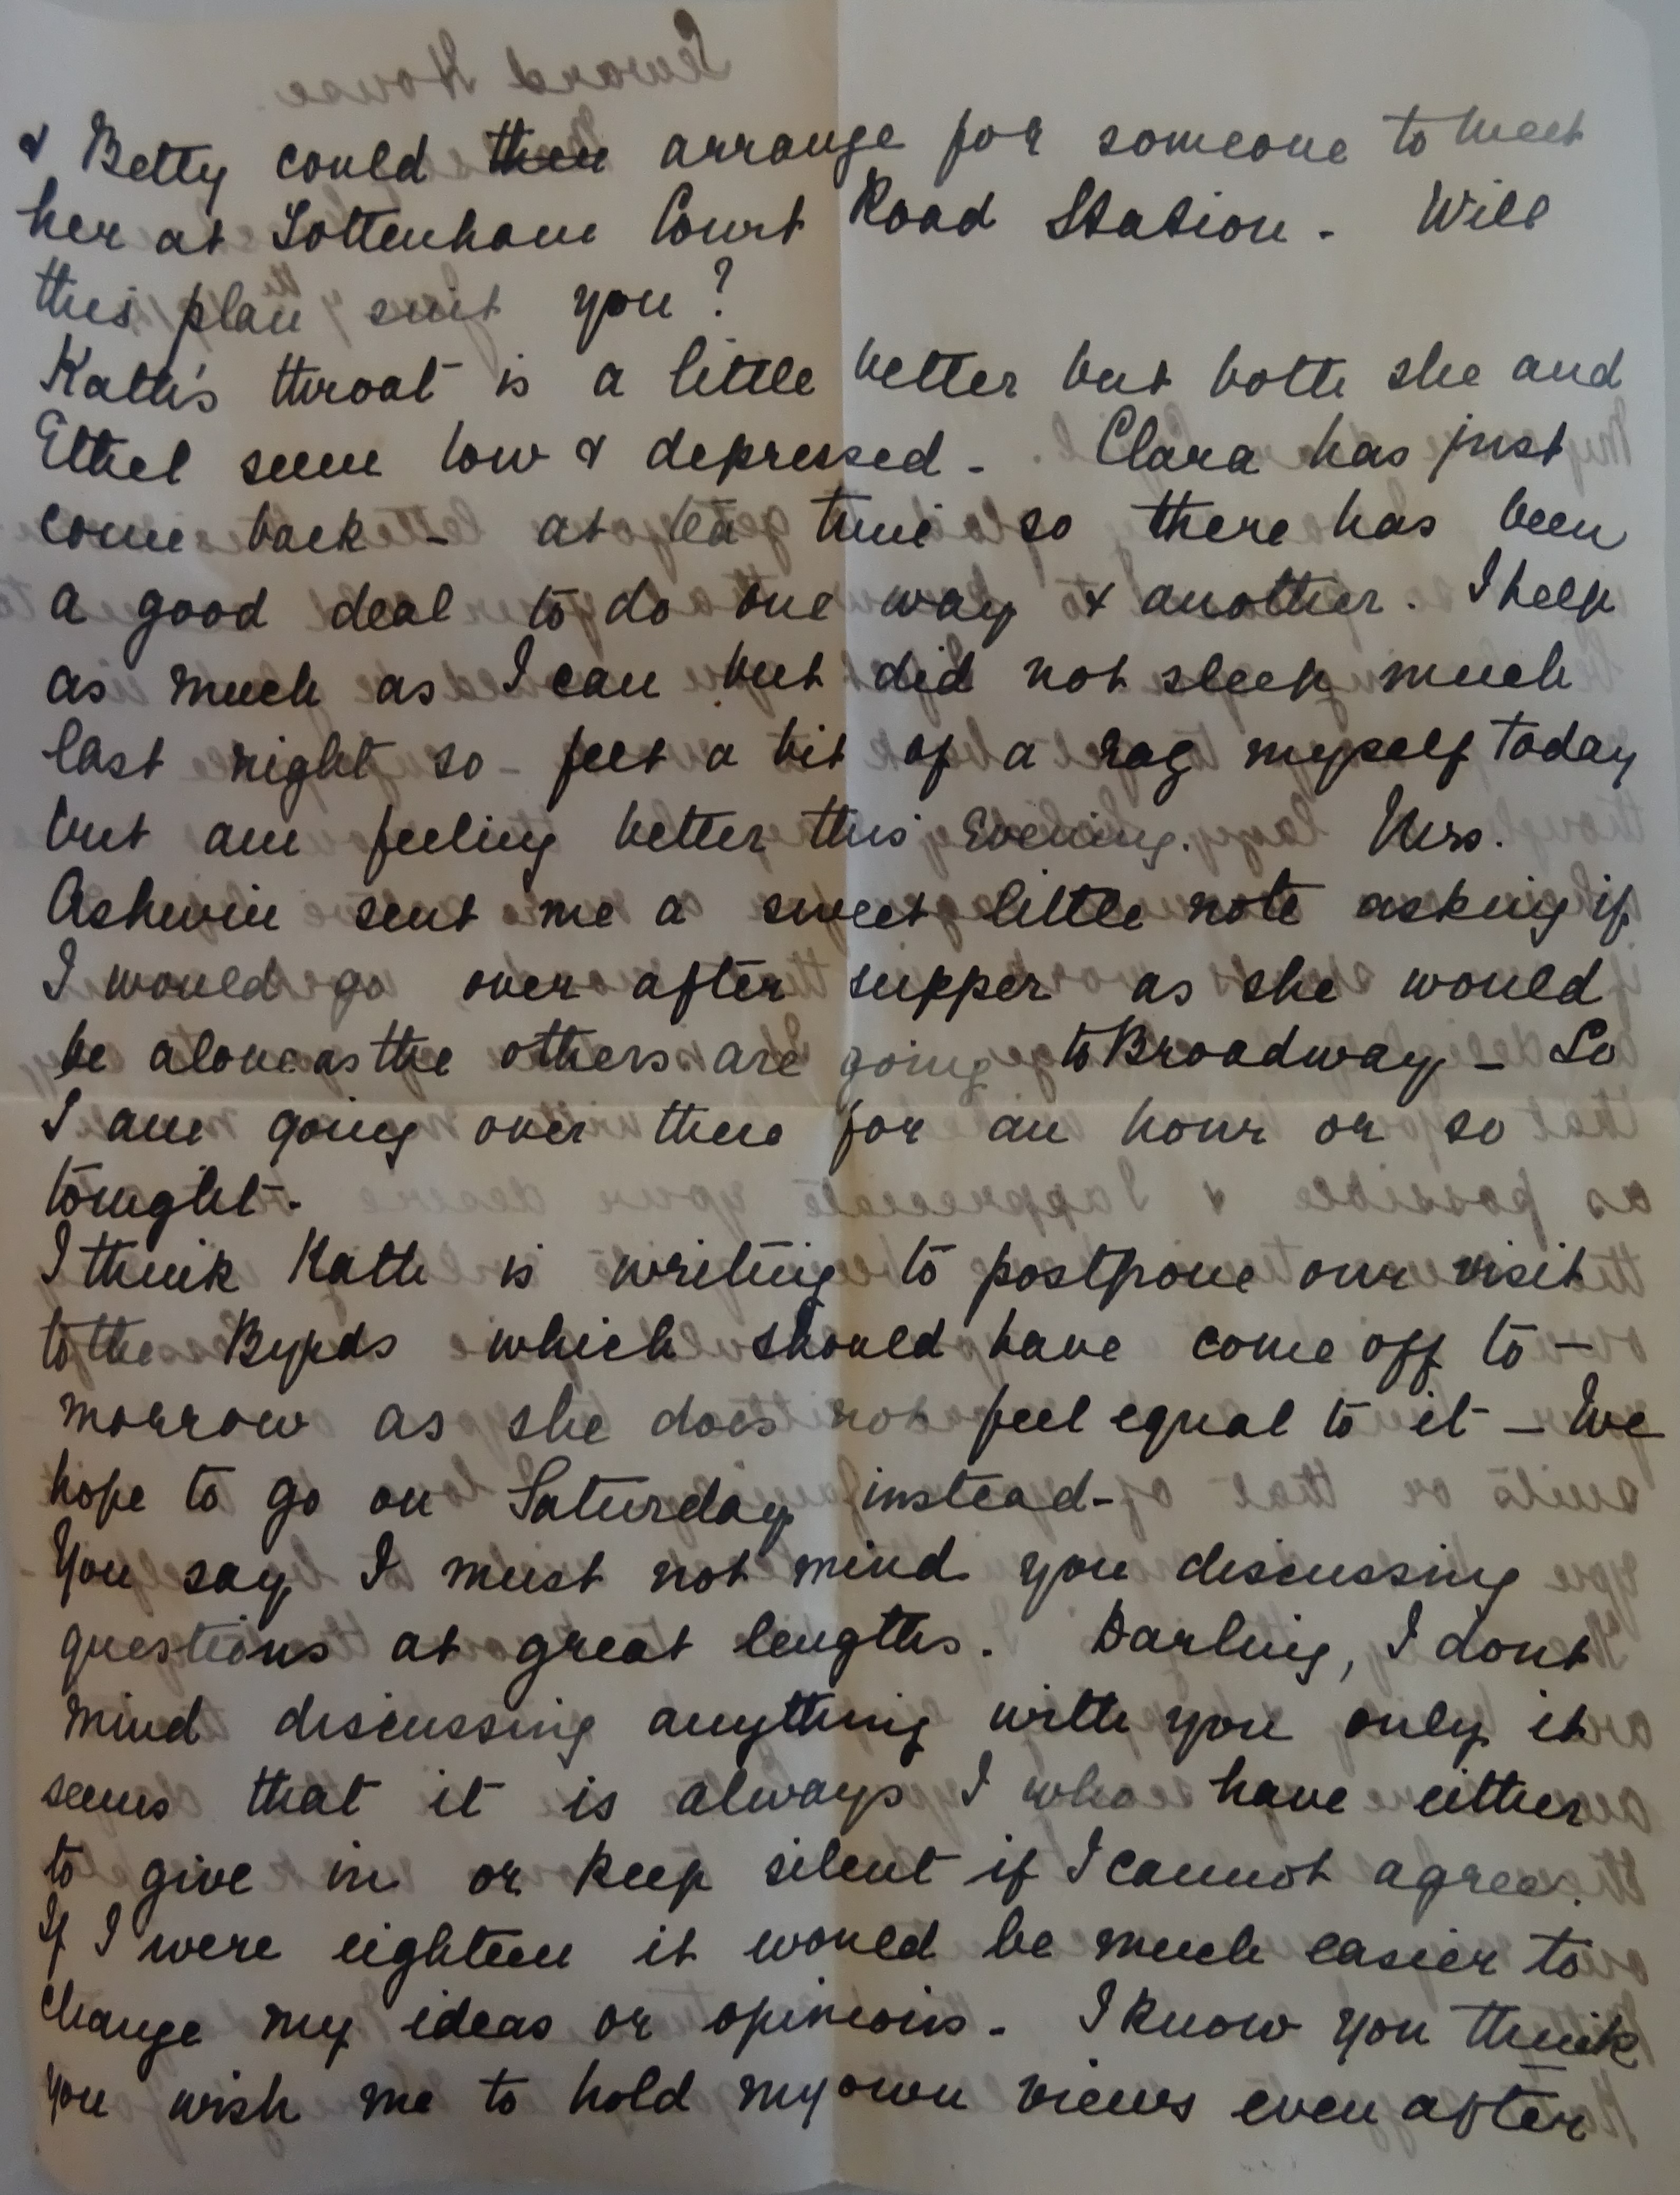 & Betty could then arrange for someone to meet
her at Tottenham Court Road Station - Will
this plan suit you?
Kath's throat is a little better but both she and
Ethel seem low & depressed - Clara has just
come back - at tea time so there has been
a good deal to do one way & another. I help
as much as I can but did not sleep much
last night so - felt a bit of a rag myself today
but am feeling better this Evening. Mrs.
Ashwin sent me a sweet little note asking if
I would go over after supper as she would
be alone as the others are going to Broadway - So
I am going over there for an hour or so
tonight -
I think Kath is writing to postpone our visit
to the Byrds which should have come off to -
morrow as she does not feel equal to it - We
hope to go on Saturday instead -
You say I must not mind you discussing
questions at great lengths. Darling, I dont
mind discussing anything with you only it
seems that it is always I who have either
to give in or keep silent if I cannot agree.
If I were eighteen it would be much easier to
change my ideas or opinions - I know you think
you wish me to hold my own views even after